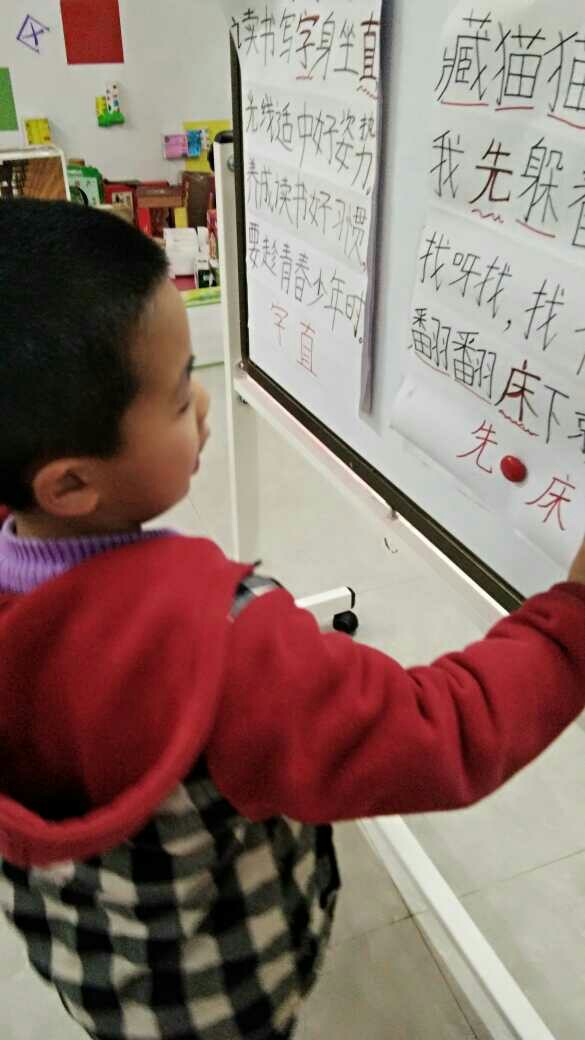 读书写字身坐直
光线适中好姿势,
养成读书好习惯,
要趁青春少年时。
字 直
藏猫猫
我先躲
找呀找,找
翻翻床下
先 床